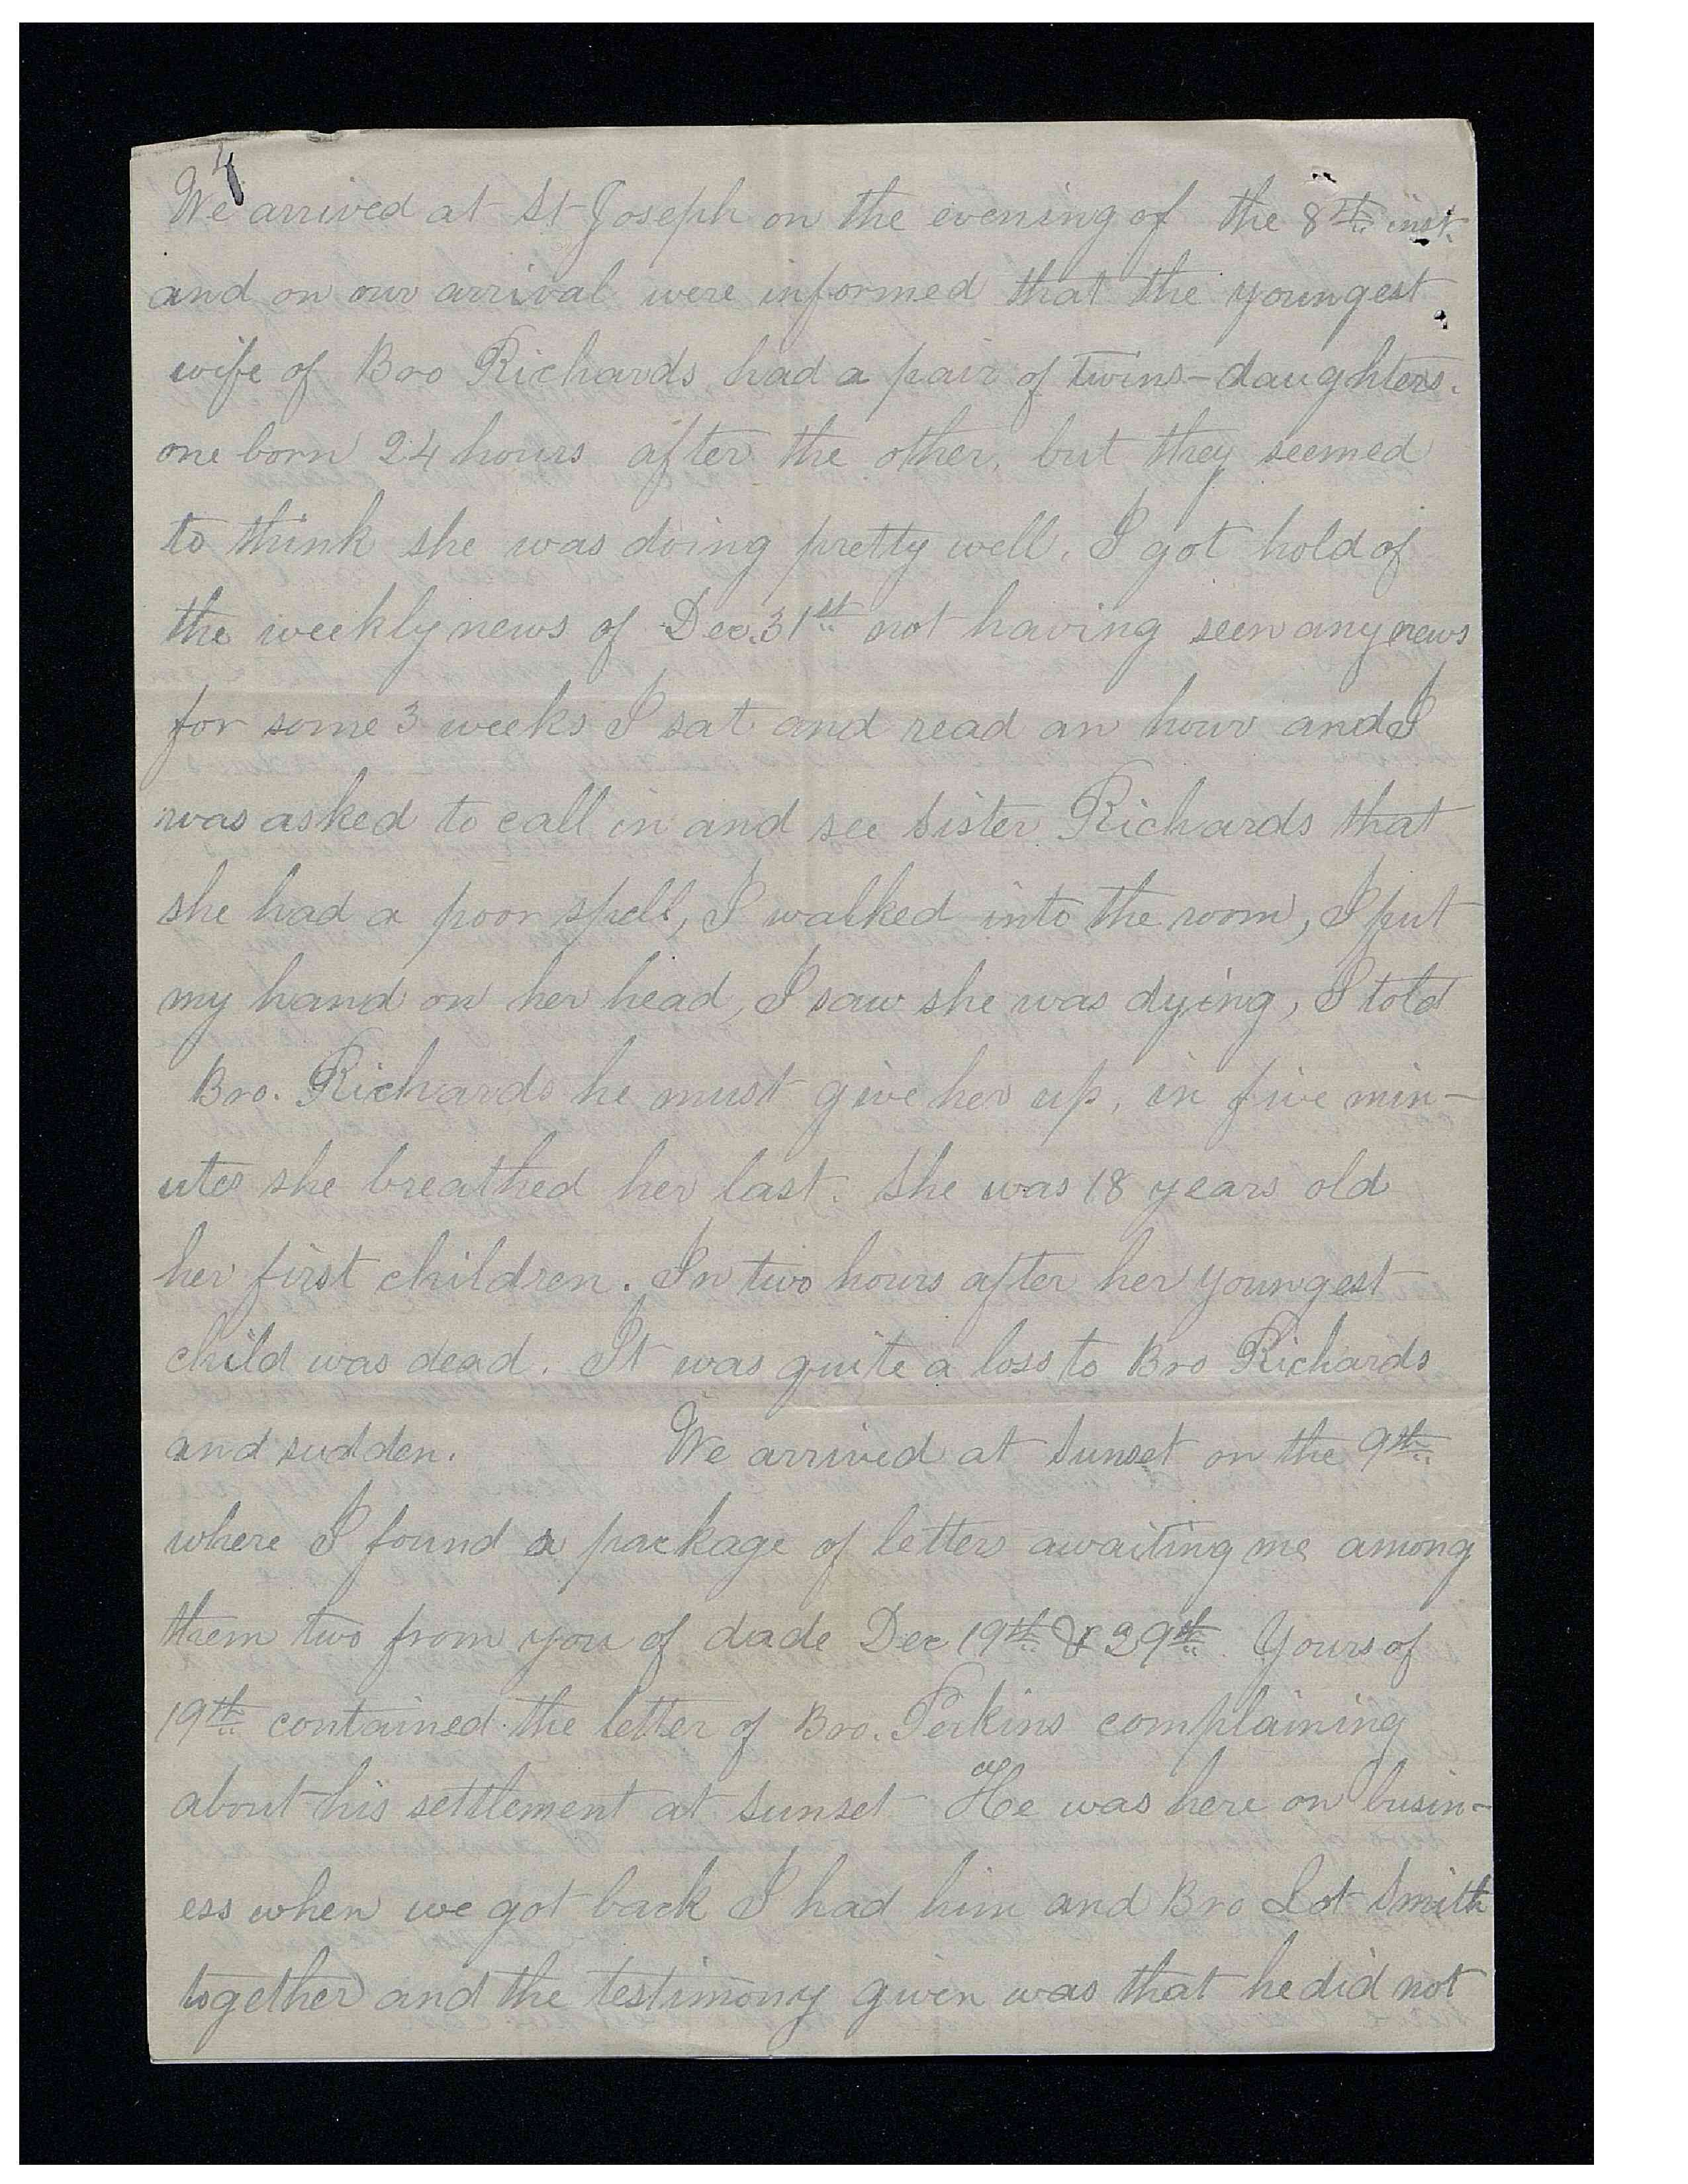 4
We arrived at St Joseph on the evening of the 8th inst.
and on our arrival were informed that the youngest
wife of Bro Richards had a pair of twins-daughters.
one born 24 hours after the other, but they seemed
to think she was doing pretty well. I got hold of
the weekly news of Dec. 31st not having seen any news
for some 3 weeks I sat and read an hour and I
was asked to call in and see Sister Richards that
she had a poor spell, I walked into the room, I put
my hand on her head, I saw she was dying, I told
Bro. Richards he must give her up, in five min-
utes she breathed her last. She was 18 years old
her first children. In two hours after her youngest
child was dead. It was quite a loss to Bro Richards
and sudden. We arrived at Sunset on the 9th
where I found a package of letters awaiting me among
them two from you of dade Dec 19th & 29th. Yours of
19th contained the letter of Bro. Perkins complaining
about his settlement at Sunset He was here on busin-
ess when we got back I had him and Bro Lot Smith
together and the testimony given was that he did not